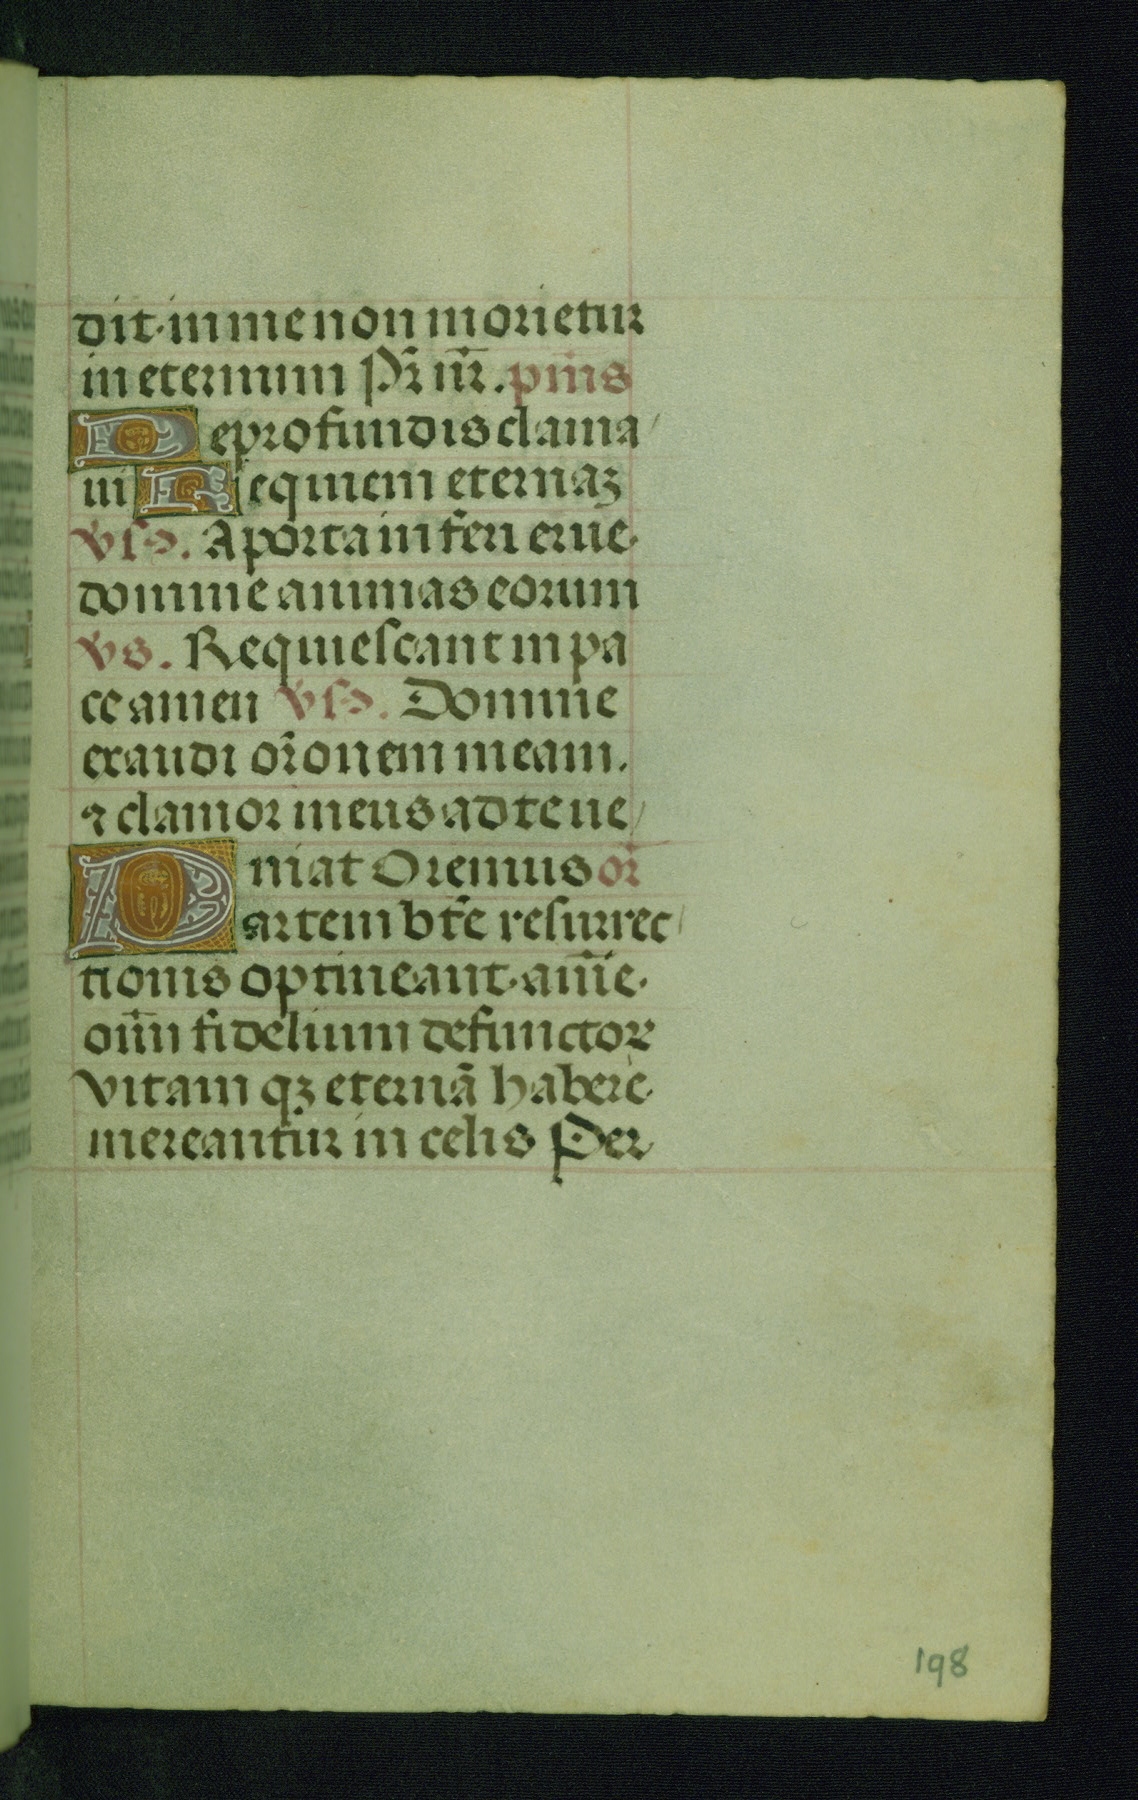 dit in me non morietur
in eternum Pr̃ nr̃. pm̃s
De profundis clama
ui Requiem eternaꝫ
Vſꝰ. A porta inferi erue
domine animas eorum
Vs. Requieſcant in pa
ce amen Vſꝰ. Domine
exaudi or̃onem meam.
⁊ clamor meus ad te ue
niat Oremus or̃
Partem bt̃e reſurrec
tionis optineant aīē
om̄n fidelium defunctor
Vitam qꝫ eternā habere
mereantur in celis Per
198